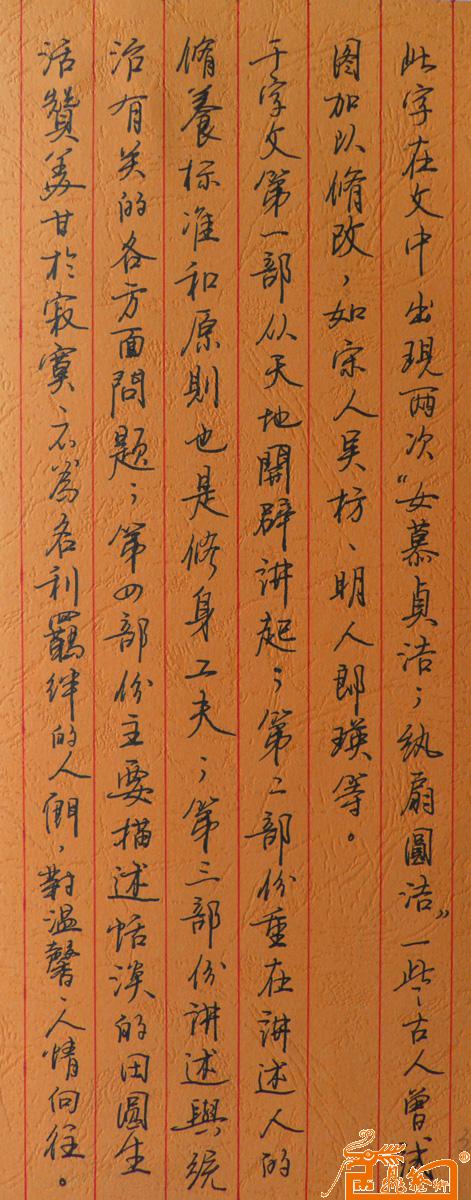 此字在文中出現兩次“女慕貞洁；紈扇圓洁”一些古人曾試
图加以脩改，如宋人吴枋、明人郎瑛等。
千字文第一部从天地開辟讲起；第二部份重在讲述人的
脩養标准和原則也是修身工夫；第三部份讲述與统
治有关的各方面問题；第四部份主要描述恬淡的田園生
活贊美甘於寂寞不為名利羁绊的人們，對温馨人情向往。